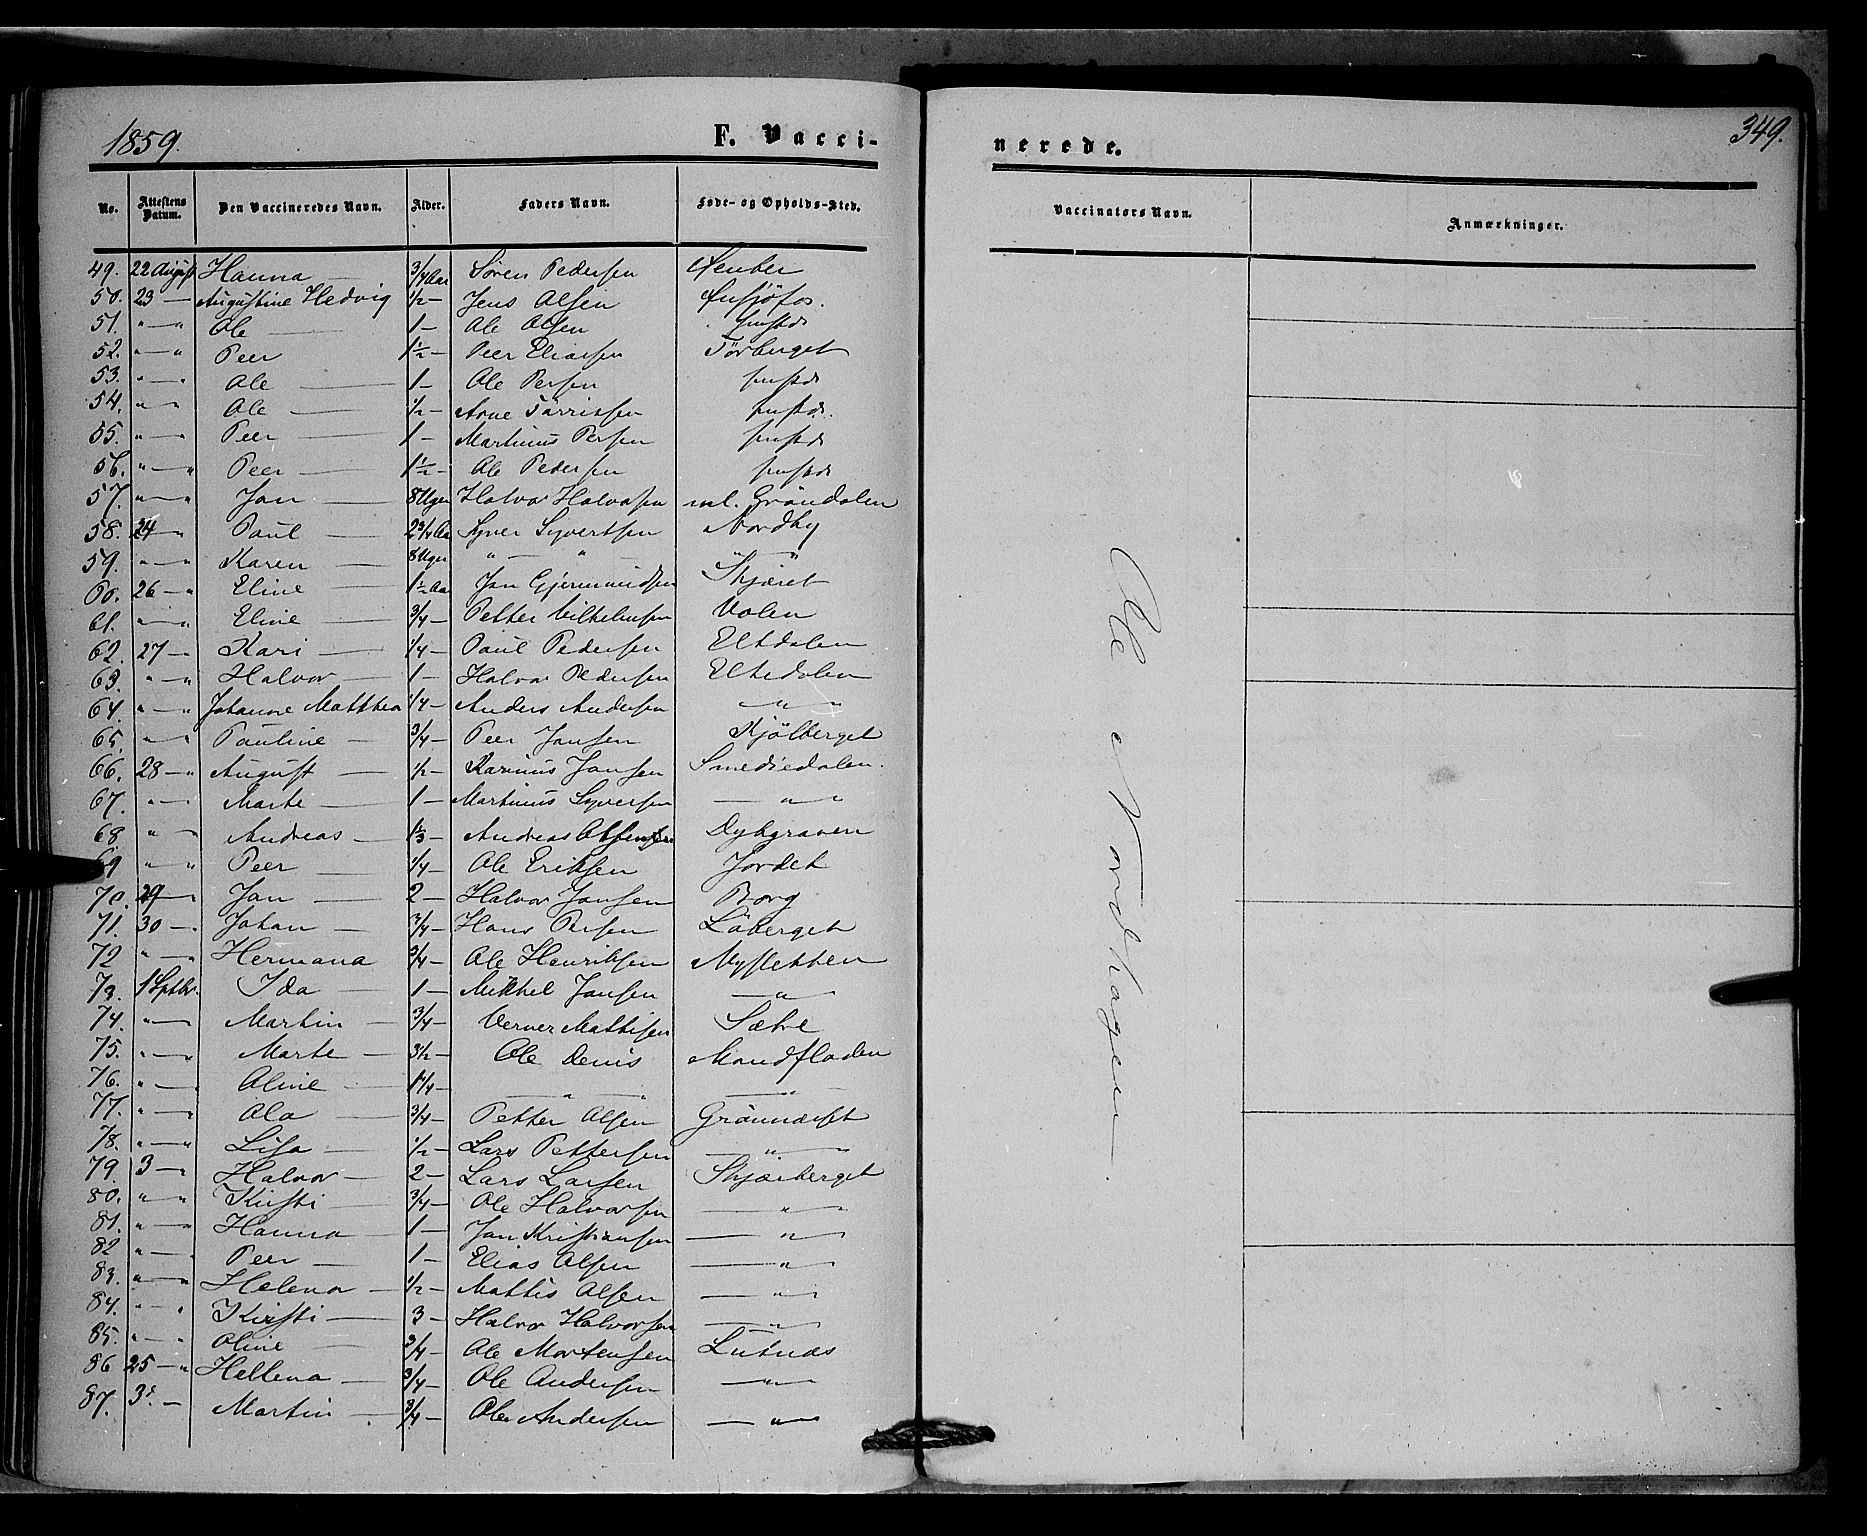 1859.
F. Vacci-
nerede.
349.
No. Attestens Datum. Den Vaccineredes Navn. Alder. Faders Navn. Føde- og Opholds-Sted.
Vaccinators Navn. Anmærkninger.
49. 22 August Hanna — 3/4 Aar Sören Pedersen
50. 23 — Augustine Hedvig 1/2 — Jens Olsen
51. " — " Ole — 1 — Ole Olsen
52. " — " Peer 1 1/2 — Peer Eliassen Törberget
53. " — " Ole — 1 — Ole Persen
54. " — " Ole — 1/2 — Arne
55. " — " Peer — 1 — Martinus Persen
56. " — " Peer — 1 1/2 — Ole Pedersen
57. " — " Jon — 8 Uger Halvor Halvorsen Gröndalen
58. 24 — " Paul — 2 3/4 Aar Syver Syvertsen Nordby
59. " — " Karen — 8 Uger " — " — " — "
60. 26 — " Eline — 1 1/2 Aar Jon Gjermundsen Skjæret
61. " — " Eline — 3/4 — Petter Vilhelmsen Volen
62. 27 — " Kari — 1/4 — Paul Pedersen Eltdalen
63. " — " Halvor — 1 — Halvor Pedersen Eltedalen
64. " — " Johanne Matthea 1/4 — Anders Andersen " — "
65. " — " Pauline — 3/4 — Peer Jonsen Kjölberget
66. 28 — " August — 1/2 — Rasmus Jonsen Smediedalen.
67. " — " Marte — 1 — Martinus Syversen — " —
68 " — " Andreas — 1 1/3 — Andreas Olsen Dybgraven
69 " — " Peer — 1/4 — Ole Eriksen Jordet
70. 29 — Jon — 2 — Halvor Jonsen Borg
71. 30 — Johan — 3/4 — Hans Persen Löberget
72 " — " Hermana 3/4 — Ole Henriksen Nysletten
73. 1 Septbr. Ida — 1 — Mikkel Jonsen — " —
74. " — Martin — 3/4 — Verner Mathisen Sætre
75. " — " Marte — 3 1/2 — Ole Denis Mandfloden
76. " — Oline — 1 1/4 — — " — " — " —
77. " — Ola — 3/4 — Petter Olsen
78. " — " Lisa — 1/2 — Lars Pettersen — " —
79. 3 — " Halvor — 2 — Lars Larsen Skjærberget
80. " — " Kirsti — 3/4 — Ole Halvorsen — " —
81. " — " Hanna — 1 — Jon Kristiansen — " —
82 " — Peer — 1 — Elias Olsen — " —
83. " — " Helena — 1/2 — Mattis Olsen — " —
84. " — " Kirsti — 3 — Halvor Halvorsen — " —
85. " — " Oline — 3/4 — Ole Mortensen Lutnes
86 25 — " Hellena — 3/4 — Ole Andersen — " —
87. — Martin — 3/4 — Ole Andersen — " —
Ole Nordhagen.